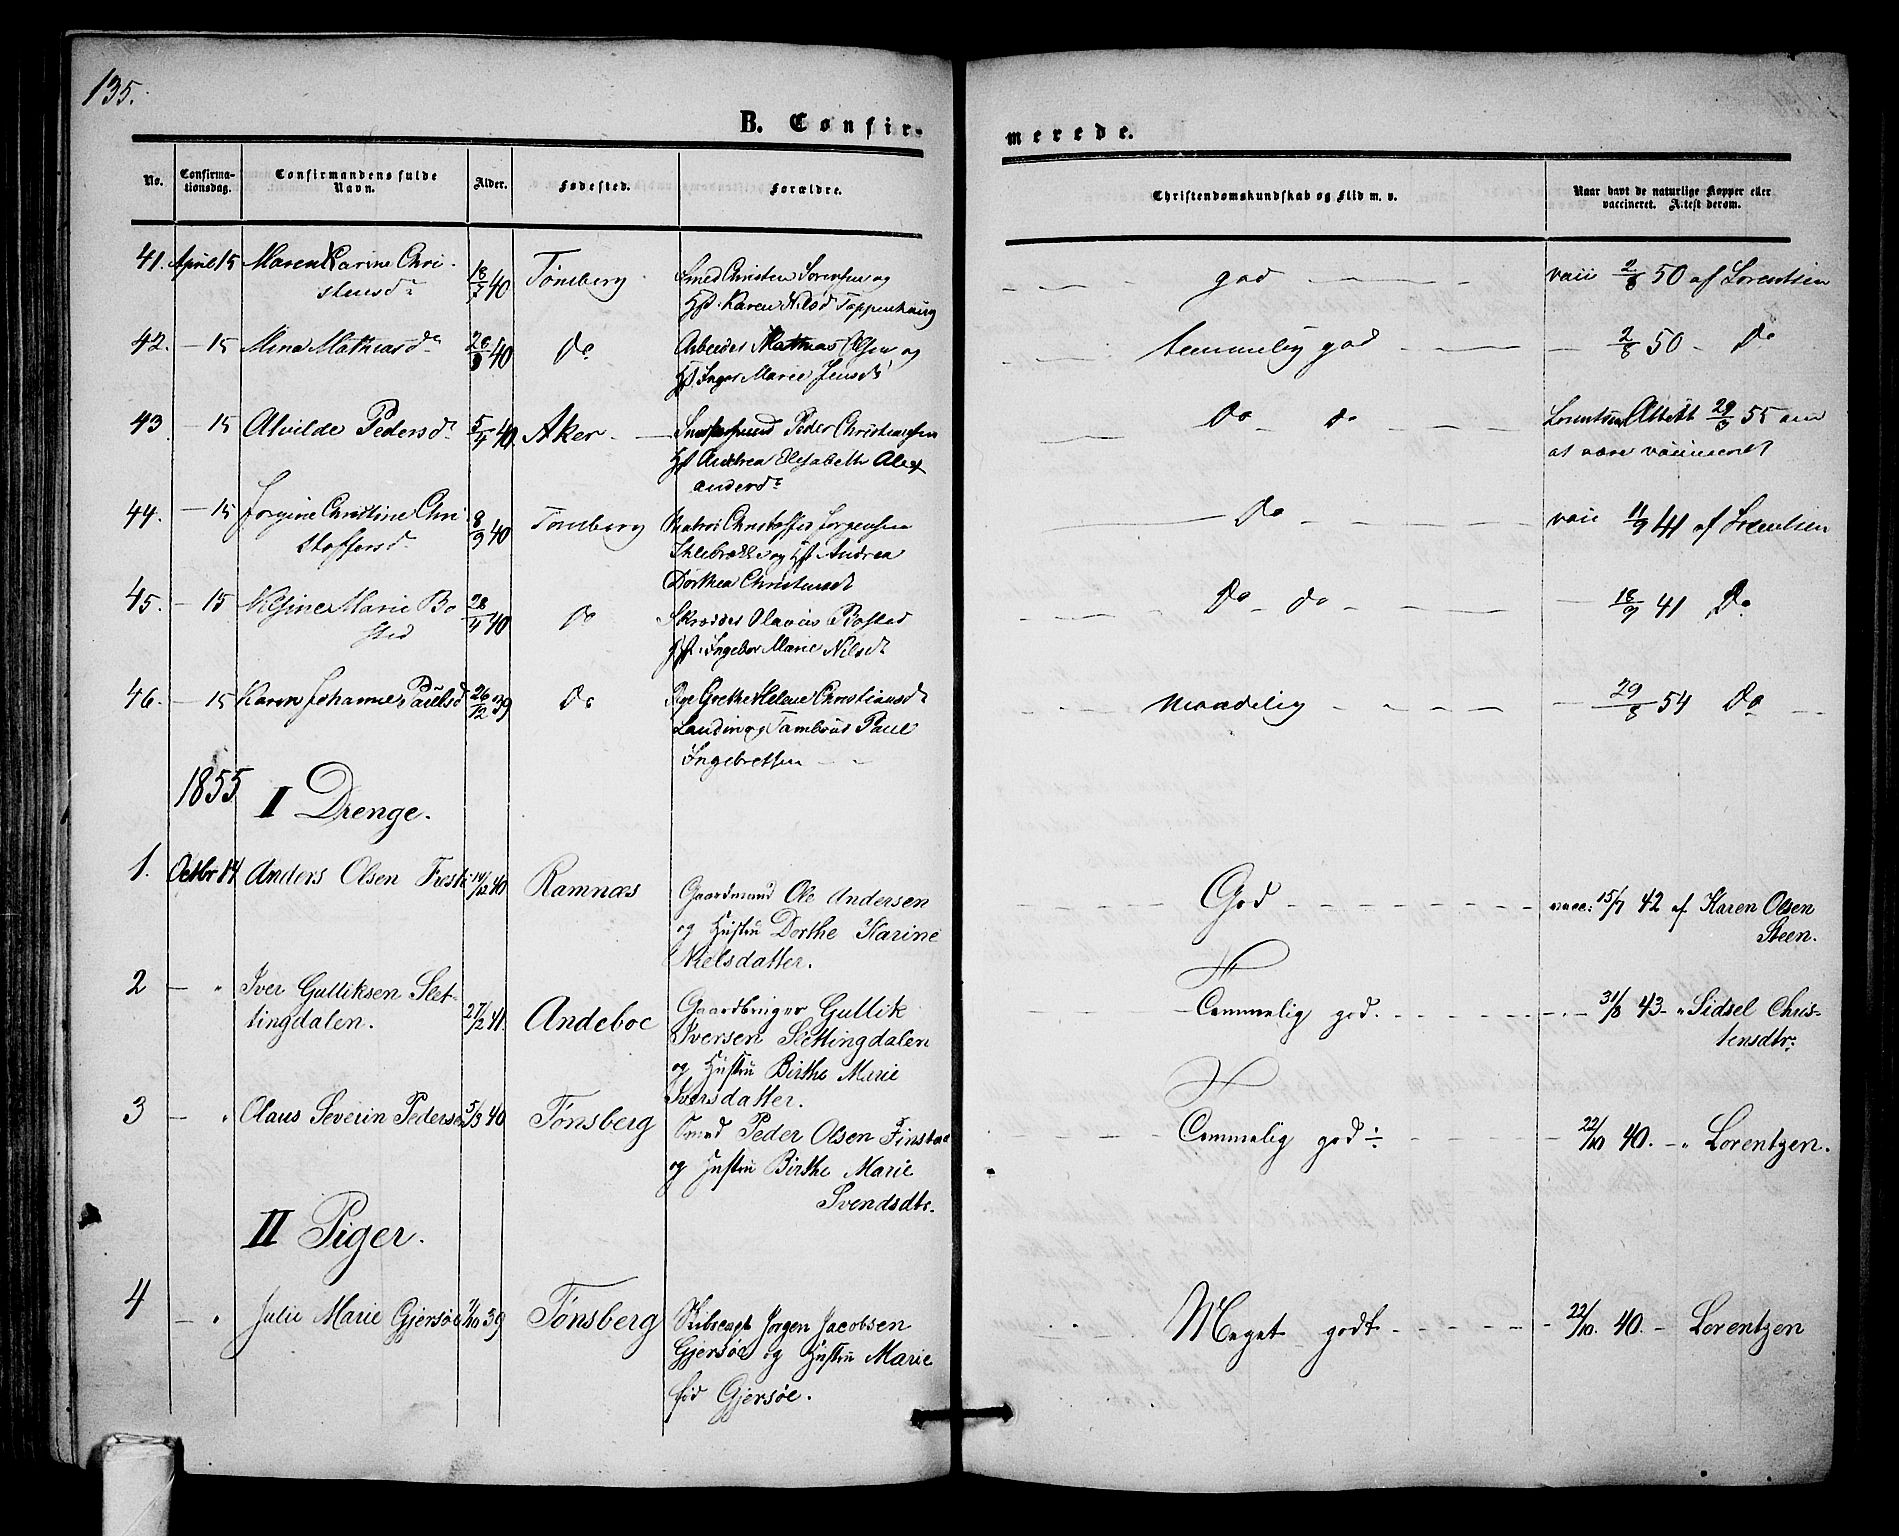 135.
B. Confir-
merede.
No.
Confirma-
tionsdag.
Confirmandens fulde
Navn.
Alder.
Fødested.
Forældre.
Christendomskundskab og Flid m. v.
Naar havt de naturlige Kopper eller
vaccineret. Attest derom.
41. April 15 Maren Karine Chri-
stensdr 18/7 40 Tønsberg Smed Christen Sørensen og
Hst. Karen Nilsd Tappenhaug
god vacc 2/8 50 af Lorentsen
42. — 15 Mina Mathiasdr 26/8 40 Do Arbeider Mathias Olsen og
Hst. Inger Marie Jensdr
temmelig god 2/8 50 Do
43. — 15 Alvilde Pedersdr 5/4 40 Aker Peder Christiansen
Hst Andrea Elisabeth Alex
andersdr
Do Do Lorentsens Attest 29/3 55 om
at være vaccineret
44. — 15 Jorgine Christine Chri
stoffersdr 8/9 40 Tønsberg Matros Christoffer Jørgensen
og Hst Andrea
Dorthea Christensdt
Do vacc 11/9 41 af Lorentsen
45. — 15 Nilsine Marie Bo
sted 28/4 40 Do Skrædder Olavus Bosted
Hst. Ingebor Marie Nilsdt
Do Do 18/9 41 Do
46. — 15 Karen Johanne Paulsd 26/12 39 Do Pige Grethe Helene Christiansdt
og Tambour Paul
Ingebretsen
Maadelig 29/8 54 Do
1855
I Drenge.
1. Octbr 14 Anders Olsen 14/12 40 Ramnæs Gaardmand Ole Andersen
og Hustru Dorthe Karine
Nielsdatter.
God vacc: 15/7 42 af Karen Olsen
Steen.
2 — " Iver Gulliksen Slet-
tingdalen. 27/2 41. Andeboe Gaardbruger Gullik
Iversen Slettingdalen
og Hustru Birthe Marie
Iversdatter.
Temmelig god. 31/8 43 — " Sidsel Chris-
tensdtr:
3 — " Olaus Severin Pedersen 5/3 40 Tønsberg Smed Peder Olsen
og Hustru Birthe Marie
Svendsdtr.
Temmelig god ÷ 22/10 40. — " Lorentzen.
II Piger.
4 — " Julie Marie Gjersøe 7/10 39 Tønsberg Jørgen Jacobsen
Gjersøe og Hustru Marie
fød Gjersøe.
Meget godt 22/10. 40. — Lorentzen